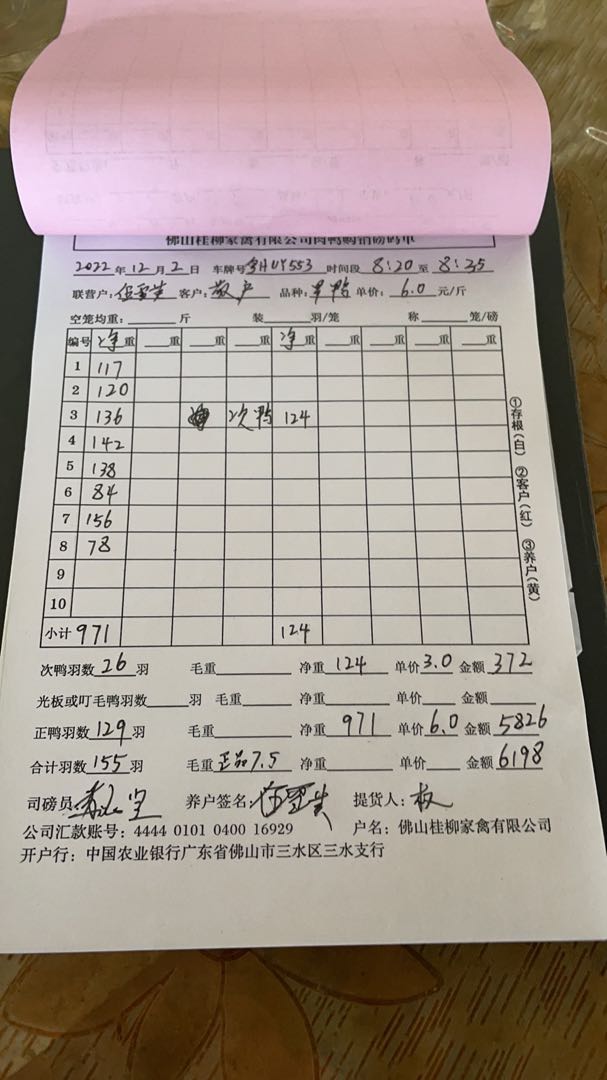 佛山桂柳家禽有限公司肉鸭购销磅码单
2022年12月2日 车牌号 粤HUY553 时间段 8:20 至 8:35
联营户: 客户:散户 品种: 鸭 单价: 6.0 元/斤
空笼均重: 斤 装 羽/笼 称 笼/磅
编号 净重 重 重 重 净重 重 重 重 重
1 117
2 120
3 136 次鸭 124
4 142
5 138
6 84
7 156
8 78
9
10
小计 971 124
①存根(白) ②客户(红) ③养户(黄)
次鸭羽数 26 羽 毛重 净重 124 单价 3.0 金额 372
光板或叮毛鸭羽数 羽 毛重 净重 单价 金额
正鸭羽数 129 羽 毛重 净重 971 单价 6.0 金额 5826
合计羽数 155 羽 毛重 正品7.5 净重 单价 金额 6198
司磅员: 养户签名: 提货人:
公司汇款账号: 4444 0101 0400 16929 户名: 佛山桂柳家禽有限公司
开户行: 中国农业银行广东省佛山市三水区三水支行